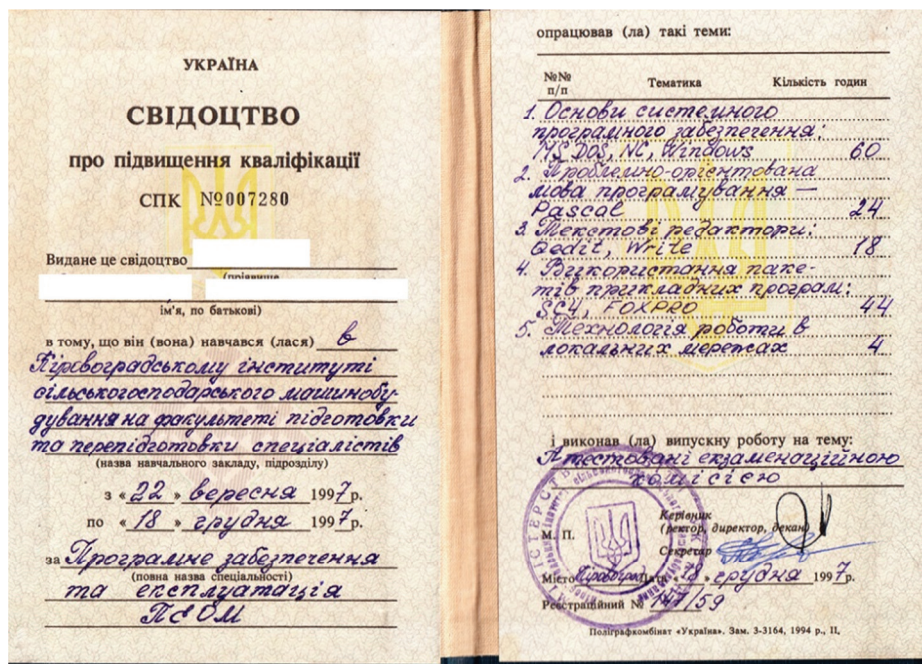 УКРАЇНА
СВІДОЦТВО
про підвищення кваліфікації
СПК №007280
Видане це свідоцтво
ім'я, по батькові)
в тому, що він (вона) навчався (лася) в
Кіровоградському інституті
сільськогосподарського машинобу
дування на факультеті підготовки
та перепідготовки спеціалістів
(назва навчального закладу, підрозділу)
з « 22 » вересня 1997 р.
по « 18 » грудня 1997 р.
за Програмне забезпечення
(повна назва спеціальності)
та експлуатація
ПЕОМ
опрацював (ла) такі теми:
№№ Тематика Кількість годин
п/п
1. Основи системного
програмного забезпечення:
MS DOS, NC, Windows 60
2. Проблемно-орієнтована
мова програмування —
Pascal 24
3. Текстові редактори:
Qedit, Write 18
4. Використання паке-
тів прикладних програм:
SC4, FOXPRO 44
5. Технологія роботи в
локальних мережах 4
і виконав (ла) випускну роботу на тему:
Атестовані екзаменаційною
комісією
Керівник
М. П. (ректор, директор, декан)
Секретар
Місто Кіровоград Дата « 18 » грудня 1997 р.
Реєстраційний № 147/59
Поліграфкомбінат «Україна». Зам. 3-3164, 1994 р., II.